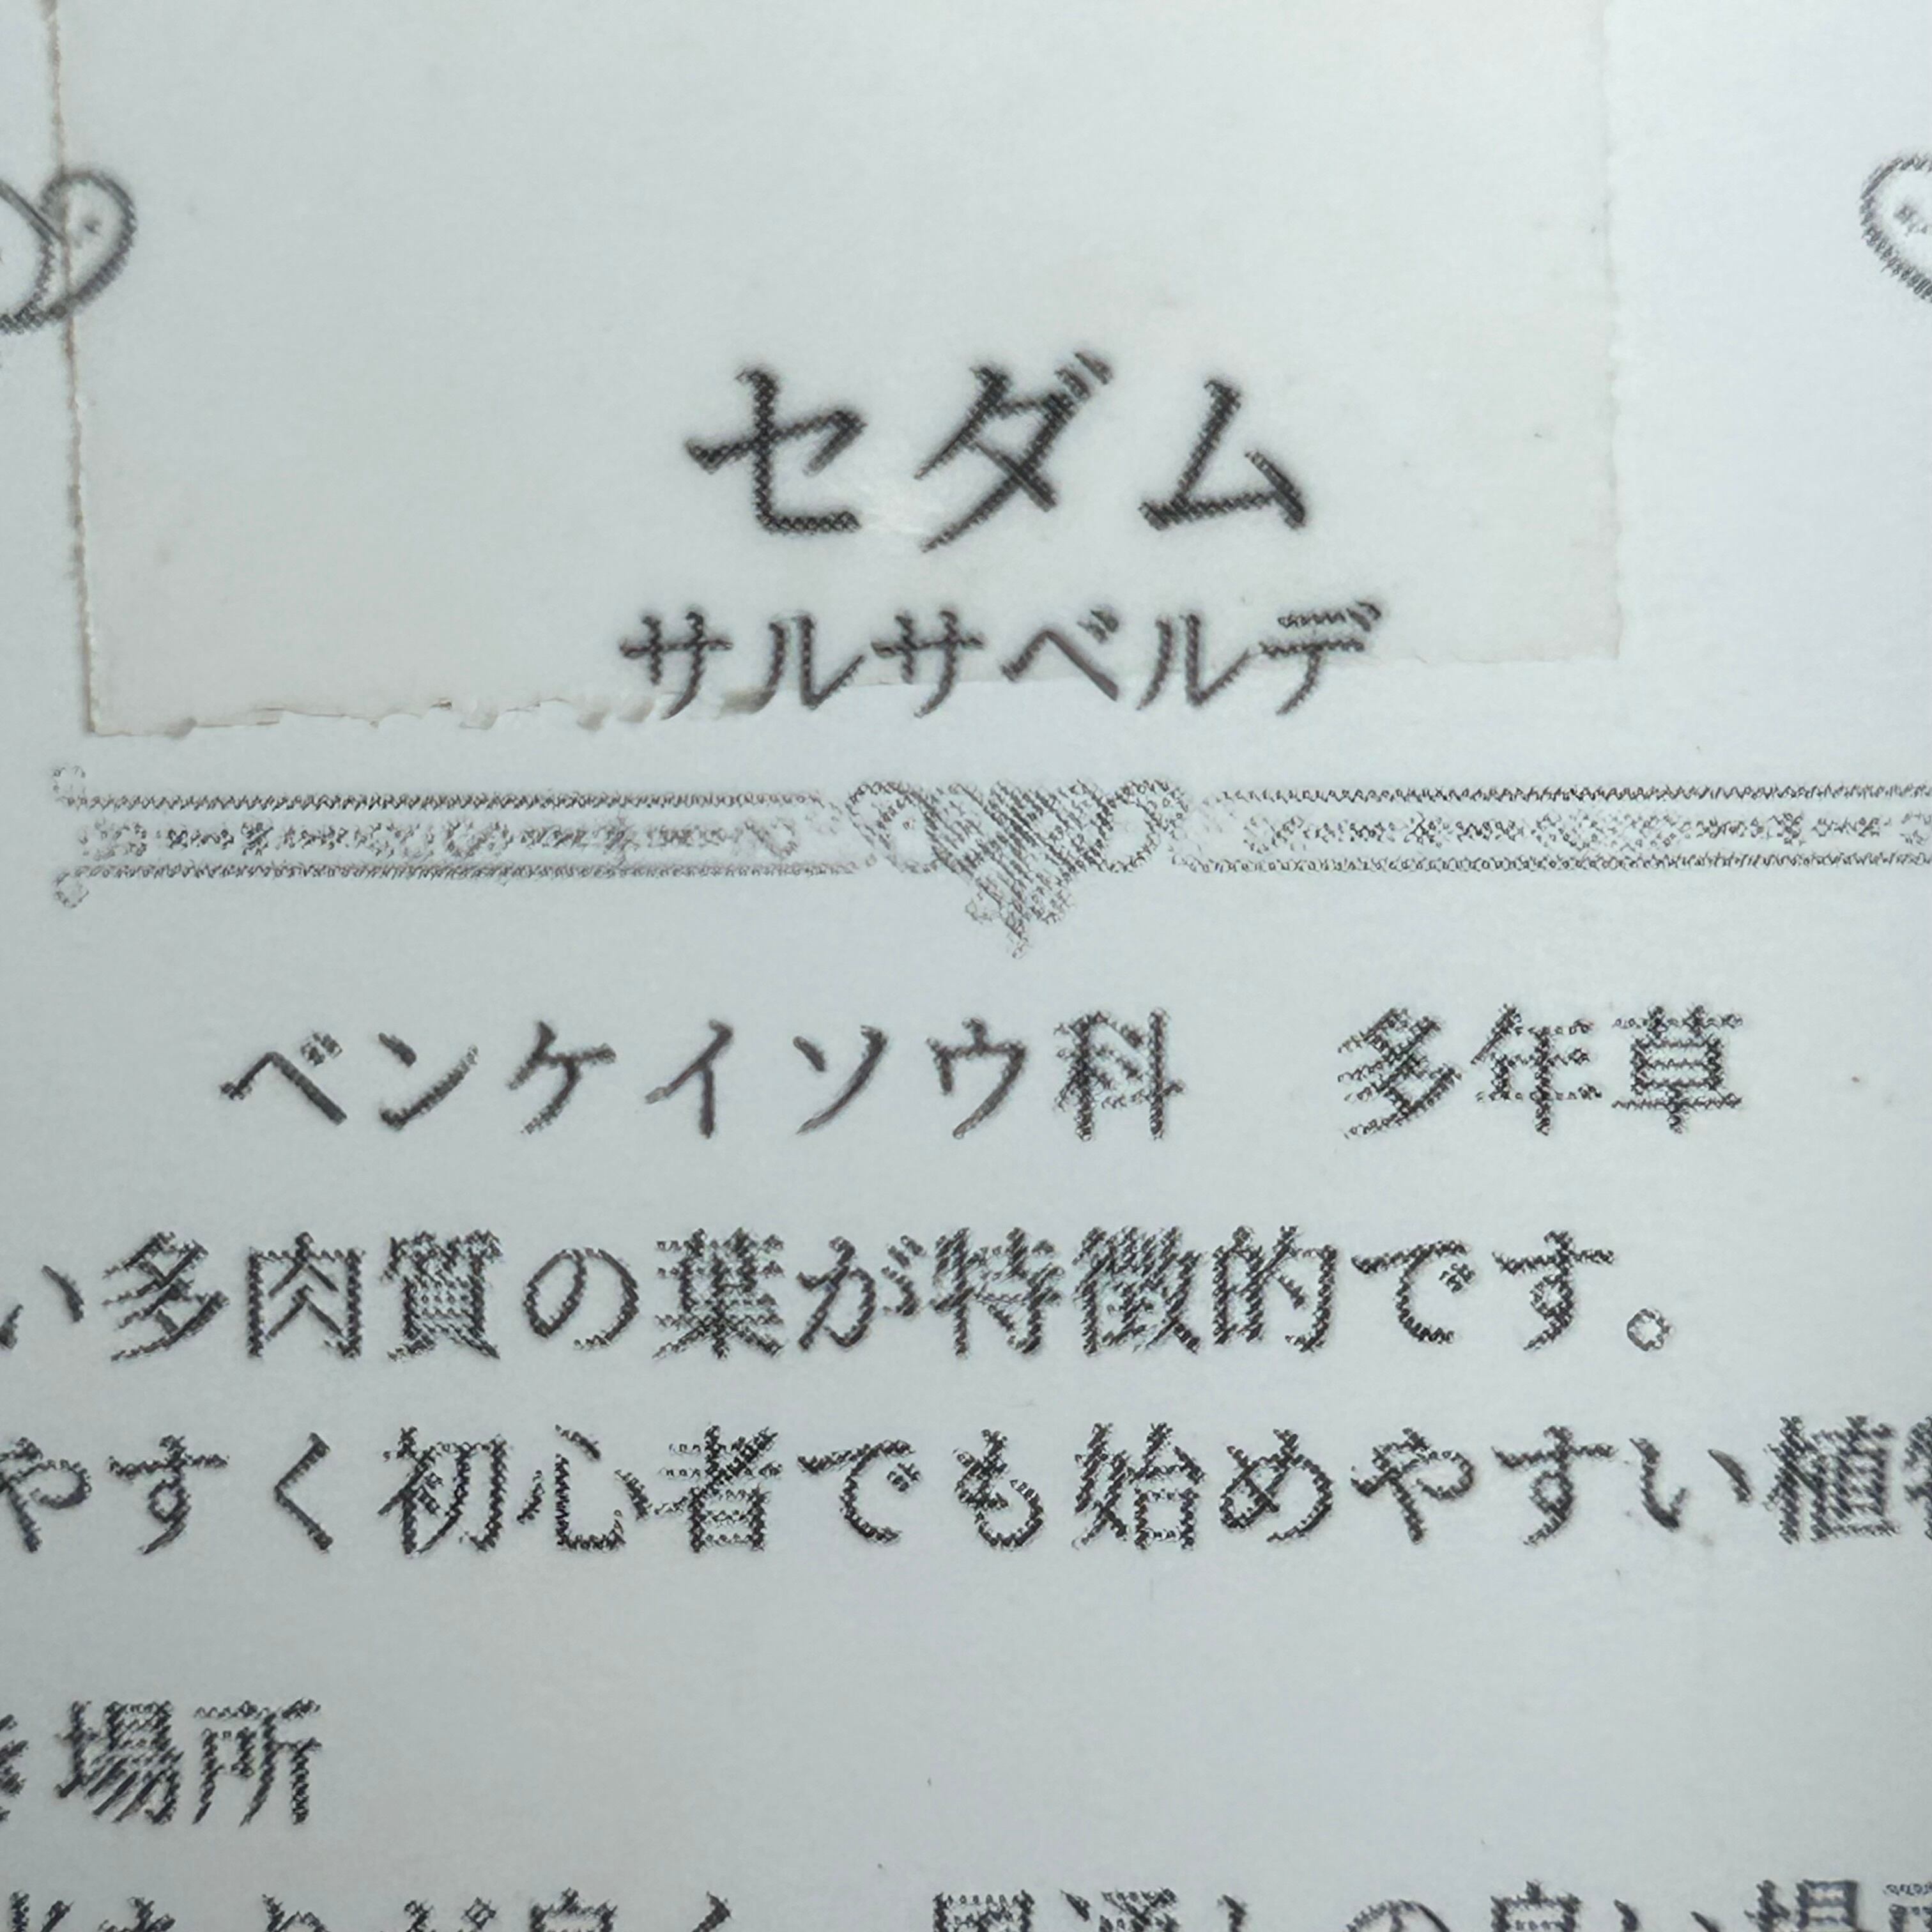 セダム
サルサベルデ
ベンケイソウ科　多年草
い多肉質の葉が特徴的です。
やすく初心者でも始めやすい植
場所